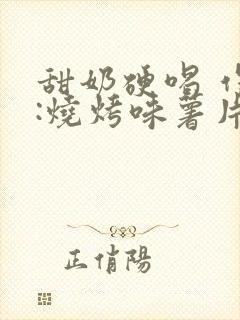 甜奶硬唱
:燒烤味薯片
正俏陽